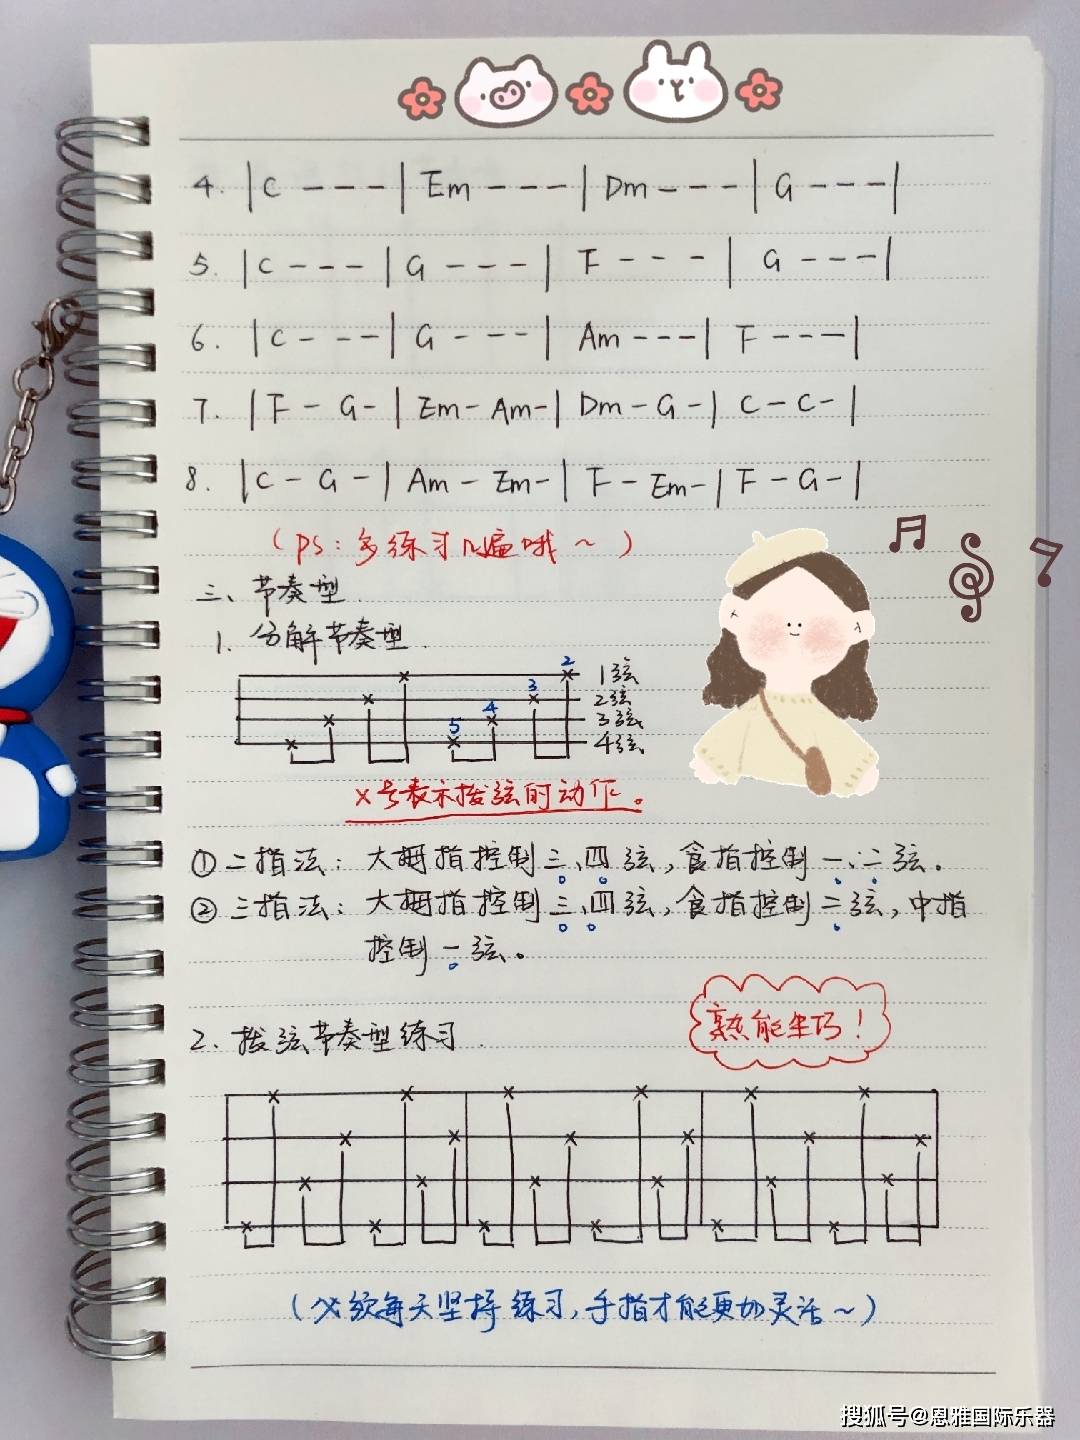 4. |C - - - | Em - - - | Dm - - - | G - - - |
5. |C - - - | G - - - | F - - - | G - - - |
6. |C - - - | G - - - | Am - - - | F - - - |
7. |F - G - | Em - Am - | Dm - G - | C - C - |
8. |C - G - | Am - Em - | F - Em - | F - G - |
(PS:多练习几遍哦~)
三、节奏型.
1. 分解节奏型.
2 1弦
3 2弦
4 3弦
5 4弦
X号表示拨弦的动作。
①二指法:大拇指控制三、四弦,食指控制一、二弦。
②三指法:大拇指控制三、四弦,食指控制二弦,中指
控制一弦。
熟能生巧!
2. 拨弦节奏型练习.
(必须每天坚持练习,手指才能更加灵活~)
搜狐号@恩雅国际乐器